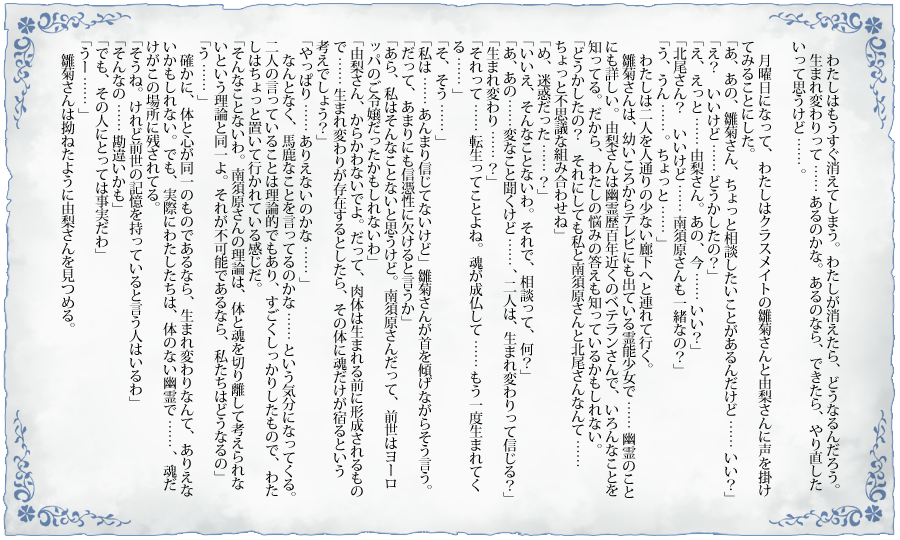 わたしはもうすぐ消えてしまう。わたしが消えたら、どうなるんだろう。
　生まれ変わりって……あるのかな。あるのなら、できたら、やり直した
いって思うけど……。
　月曜日になって、わたしはクラスメイトの雛菊さんと由梨さんに声を掛け
てみることにした。
「あ、あの、雛菊さん、ちょっと相談したいことがあるんだけど……いい？」
「え？　いいけど……どうかしたの？」
「え、えっと……由梨さん。あの、今……いい？」
「北尾さん？　いいけど……南須原さんも一緒なの？」
「う、うん……。ちょっと……」
　わたしは二人を人通りの少ない廊下へと連れて行く。
　雛菊さんは、幼いころからテレビにも出ている霊能少女で……幽霊のこと
にも詳しい。由梨さんは幽霊歴百年近くのベテランさんで、いろんなことを
知ってる。だから、わたしの悩みの答えも知っているかもしれない。
「どうかしたの？　それにしても私と南須原さんと北尾さんなんて……
ちょっと不思議な組み合わせね」
「め、迷惑だった……？」
「いいえ、そんなことないわ。それで、相談って、何？」
「あ、あの……変なこと聞くけど……、二人は、生まれ変わりって信じる？」
「生まれ変わり……？」
「それって……転生ってことよね。魂が成仏して……もう一度生まれてく
る……」
「そ、そう……」
「私は……あんまり信じてないけど」雛菊さんが首を傾げながらそう言う。
「だって、あまりにも信憑性に欠けると言うか」
「あら、私はそんなことないと思うけど。南須原さんだって、前世はヨーロ
ッパのご令嬢だったかもしれないわ」
「由梨さん、からかわないでよ。だって、肉体は生まれる前に形成されるもの
で……生まれ変わりが存在するとしたら、その体に魂だけが宿るという
考えでしょう？」
「やっぱり……ありえないのかな……」
　なんとなく、馬鹿なことを言ってるのかな……という気分になってくる。
二人の言っていることは理論的でもあり、すごくしっかりしたもので、わた
しはちょっと置いて行かれている感じだ。
「そんなことないわ。南須原さんの理論は、体と魂を切り離して考えられな
いという理論と同一よ。それが不可能であるなら、私たちはどうなるの」
「う……」
　確かに、体と心が同一のものであるなら、生まれ変わりなんて、ありえな
いかもしれない。でも、実際にわたしたちは、体のない幽霊で……、魂だ
けがこの場所に残されてる。
「そうね。けれど前世の記憶を持っていると言う人はいるわ」
「そんなの……勘違いかも」
「でも、その人にとっては事実だわ」
「うー……」
　雛菊さんは拗ねたように由梨さんを見つめる。